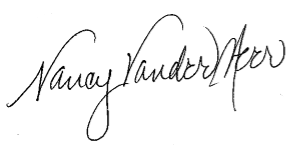 Nancy VanderMeer